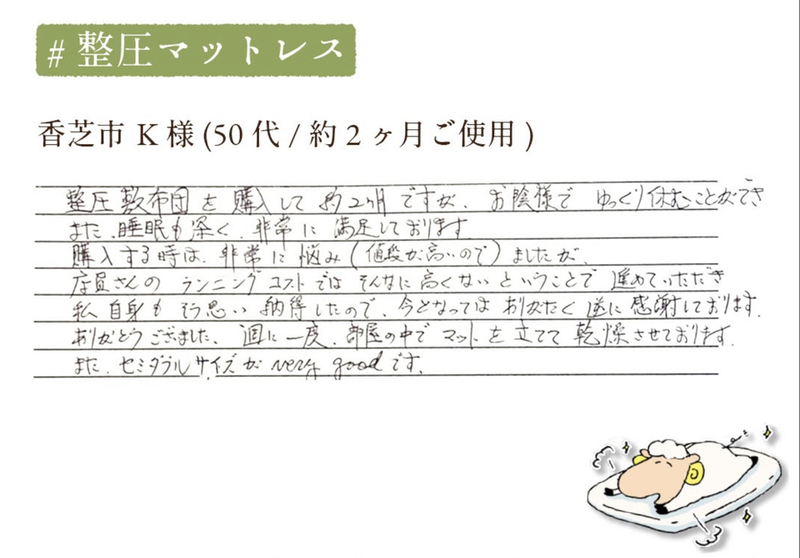 # 整圧マットレス
香芝市 K 様 (50 代 / 約 2 ヶ月ご使用 )
整圧敷布団を購入して約2ヶ月ですが、お陰様でゆっくり休むことができ
また、睡眠も深く、非常に満足しております
購入する時は、非常に悩み(値段が高いので)ましたが、
店員さんのランニングコストではそんなに高くないということで進めていただき
私自身もそう思い納得したので、今となってはありがたく逆に感謝しております。
ありがとうございました。週に一度、部屋の中でマットを立てて乾燥させております。
また、セミダブルサイズが very good です。